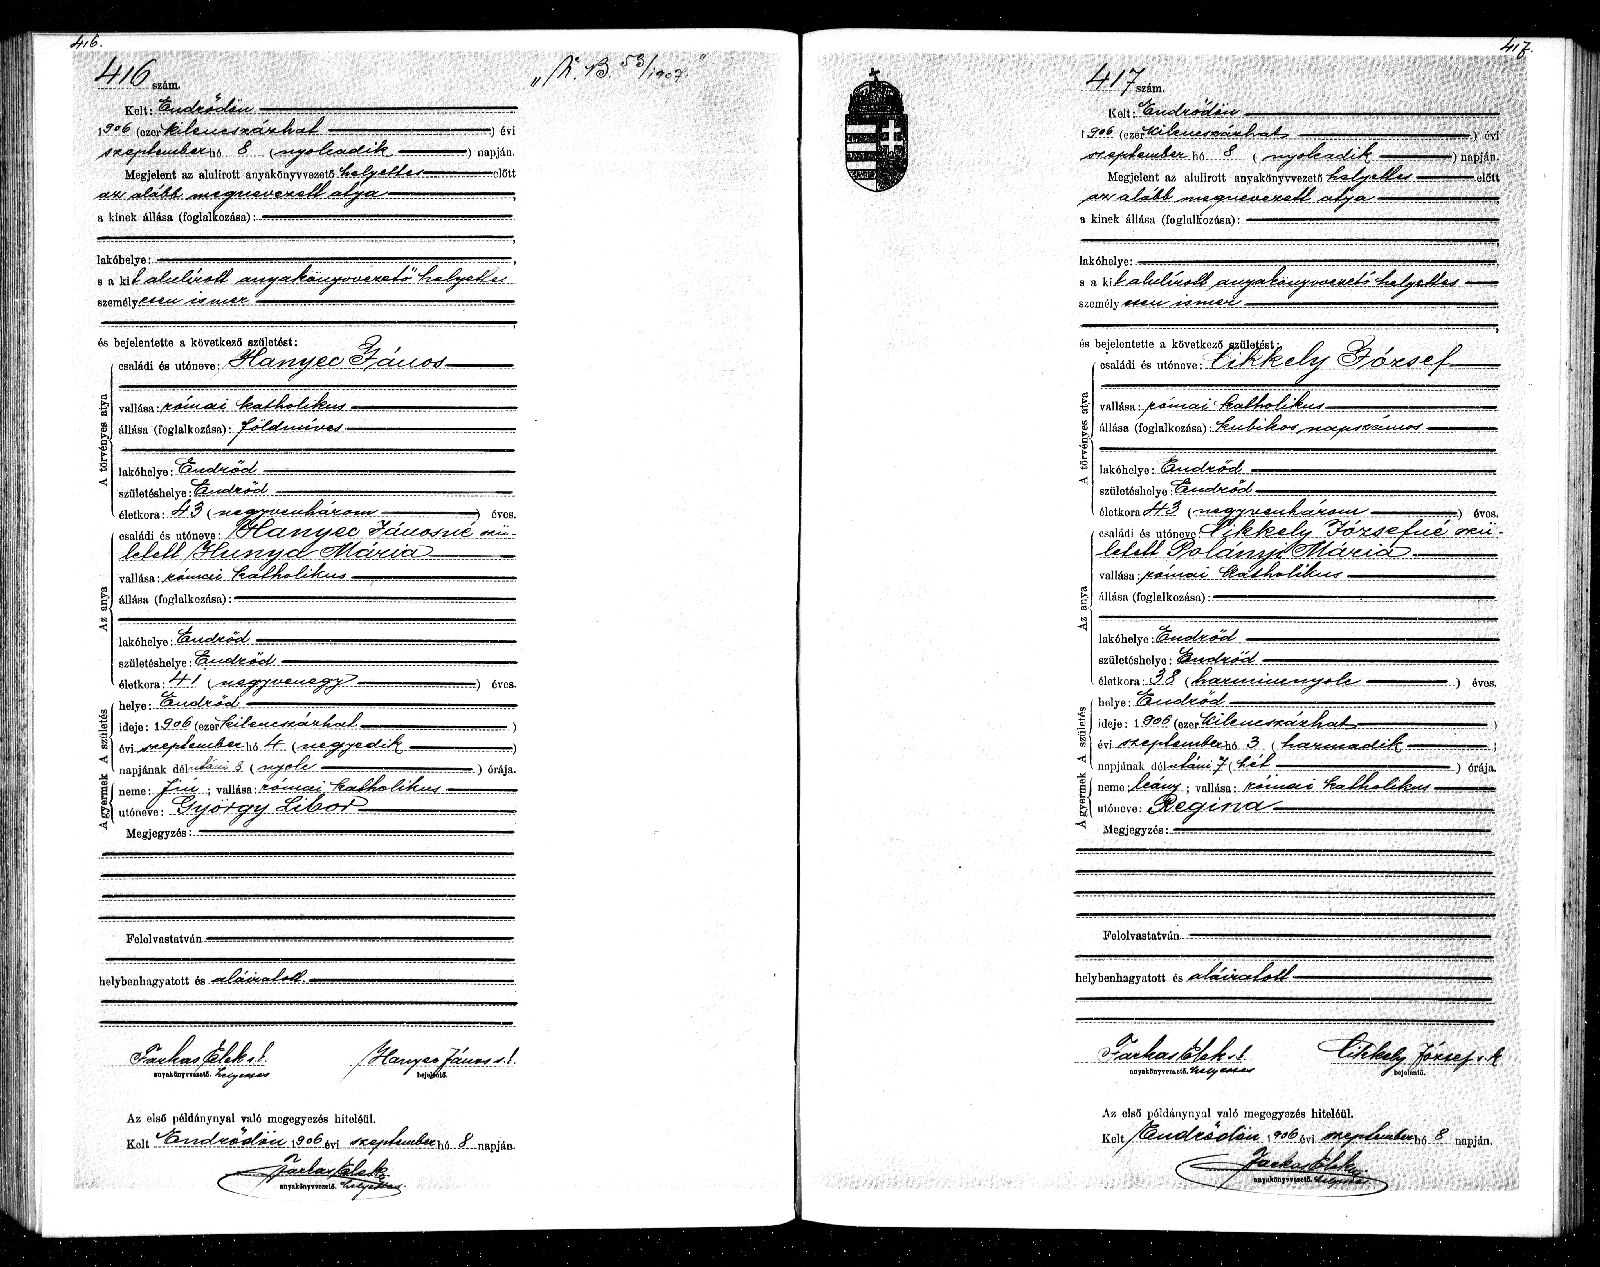 416.
416 szám.
"K. B. 53/1907."
Kelt: Endrődön
1906 (ezer kilencszázhat) évi
szeptember hó 8 (nyolcadik) napján.
Megjelent az alulirott anyakönyvvezető helyettes előtt
az alább megnevezett atya,
a kinek állása (foglalkozása):
lakóhelye:
s a kit alulírott anyakönyvvezető helyettes
személyesen ismer
és bejelentette a következő születést:
A törvényes atya
családi és utóneve: Hanyec János
vallása: római katholikus
állása (foglalkozása): földmíves
lakóhelye: Endrőd
születéshelye: Endrőd
életkora: 43 (negyvenhárom) éves.
Az anya
családi és utóneve: Hanyec Jánosné szü-
letett Hunya Mária
vallása: római katholikus
állása (foglalkozása):
lakóhelye: Endrőd
születéshelye: Endrőd
életkora: 41 (negyvenegy) éves.
A születés
helye: Endrőd
ideje: 1906 (ezer kilencszázhat)
évi szeptember hó 4 (negyedik)
napjának délutáni 8 (nyolc) órája.
A gyermek
neme: fiú; vallása: római katholikus
utóneve: György Libor
Megjegyzés:
Felolvastatván
helybenhagyatott és aláiratott.
Farkas Elek s. k. Hanyec János s. k.
anyakönyvvezető. helyettes bejelentő.
Az első példánynyal való megegyezés hiteléül.
Kelt Endrődön 1906 évi szeptember hó 8 napján.
Farkas Elek
anyakönyvvezető. helyettes
417.
417 szám.
Kelt: Endrődön
1906 (ezer kilencszázhat) évi
szeptember hó 8 (nyolcadik) napján.
Megjelent az alulirott anyakönyvvezető helyettes előtt
az alább megnevezett atya
a kinek állása (foglalkozása):
lakóhelye:
s a kit alulírott anyakönyvvezető helyettes
személyesen ismer
és bejelentette a következő születést:
A törvényes atya
családi és utóneve: Cikkely József
vallása: római katholikus
állása (foglalkozása): kubikos napszámos
lakóhelye: Endrőd
születéshelye: Endrőd
életkora 43 (negyvenhárom) éves.
Az anya
családi és utóneve Cikkely Józsefné szü-
letett Polányi Mária
vallása: római katholikus
állása (foglalkozása):
lakóhelye: Endrőd
születéshelye: Endrőd
életkora: 38 (harmincnyolc) éves.
A születés
helye: Endrőd
ideje: 1906 (ezer kilencszázhat)
évi szeptember hó 3 (harmadik)
napjának délutáni 7 (hét) órája.
A gyermek
neme leány; vallása: római katholikus
utóneve: Regina
Megjegyzés:
Felolvastatván
helybenhagyatott és aláiratott
Farkas Elek s. k. Cikkely József s. k.
anyakönyvvezető. helyettes bejelentő.
Az első példánynyal való megegyezés hiteléül.
Kelt Endrődön 1906 évi szeptember hó 8 napján.
Farkas Elek
anyakönyvvezető. helyettes